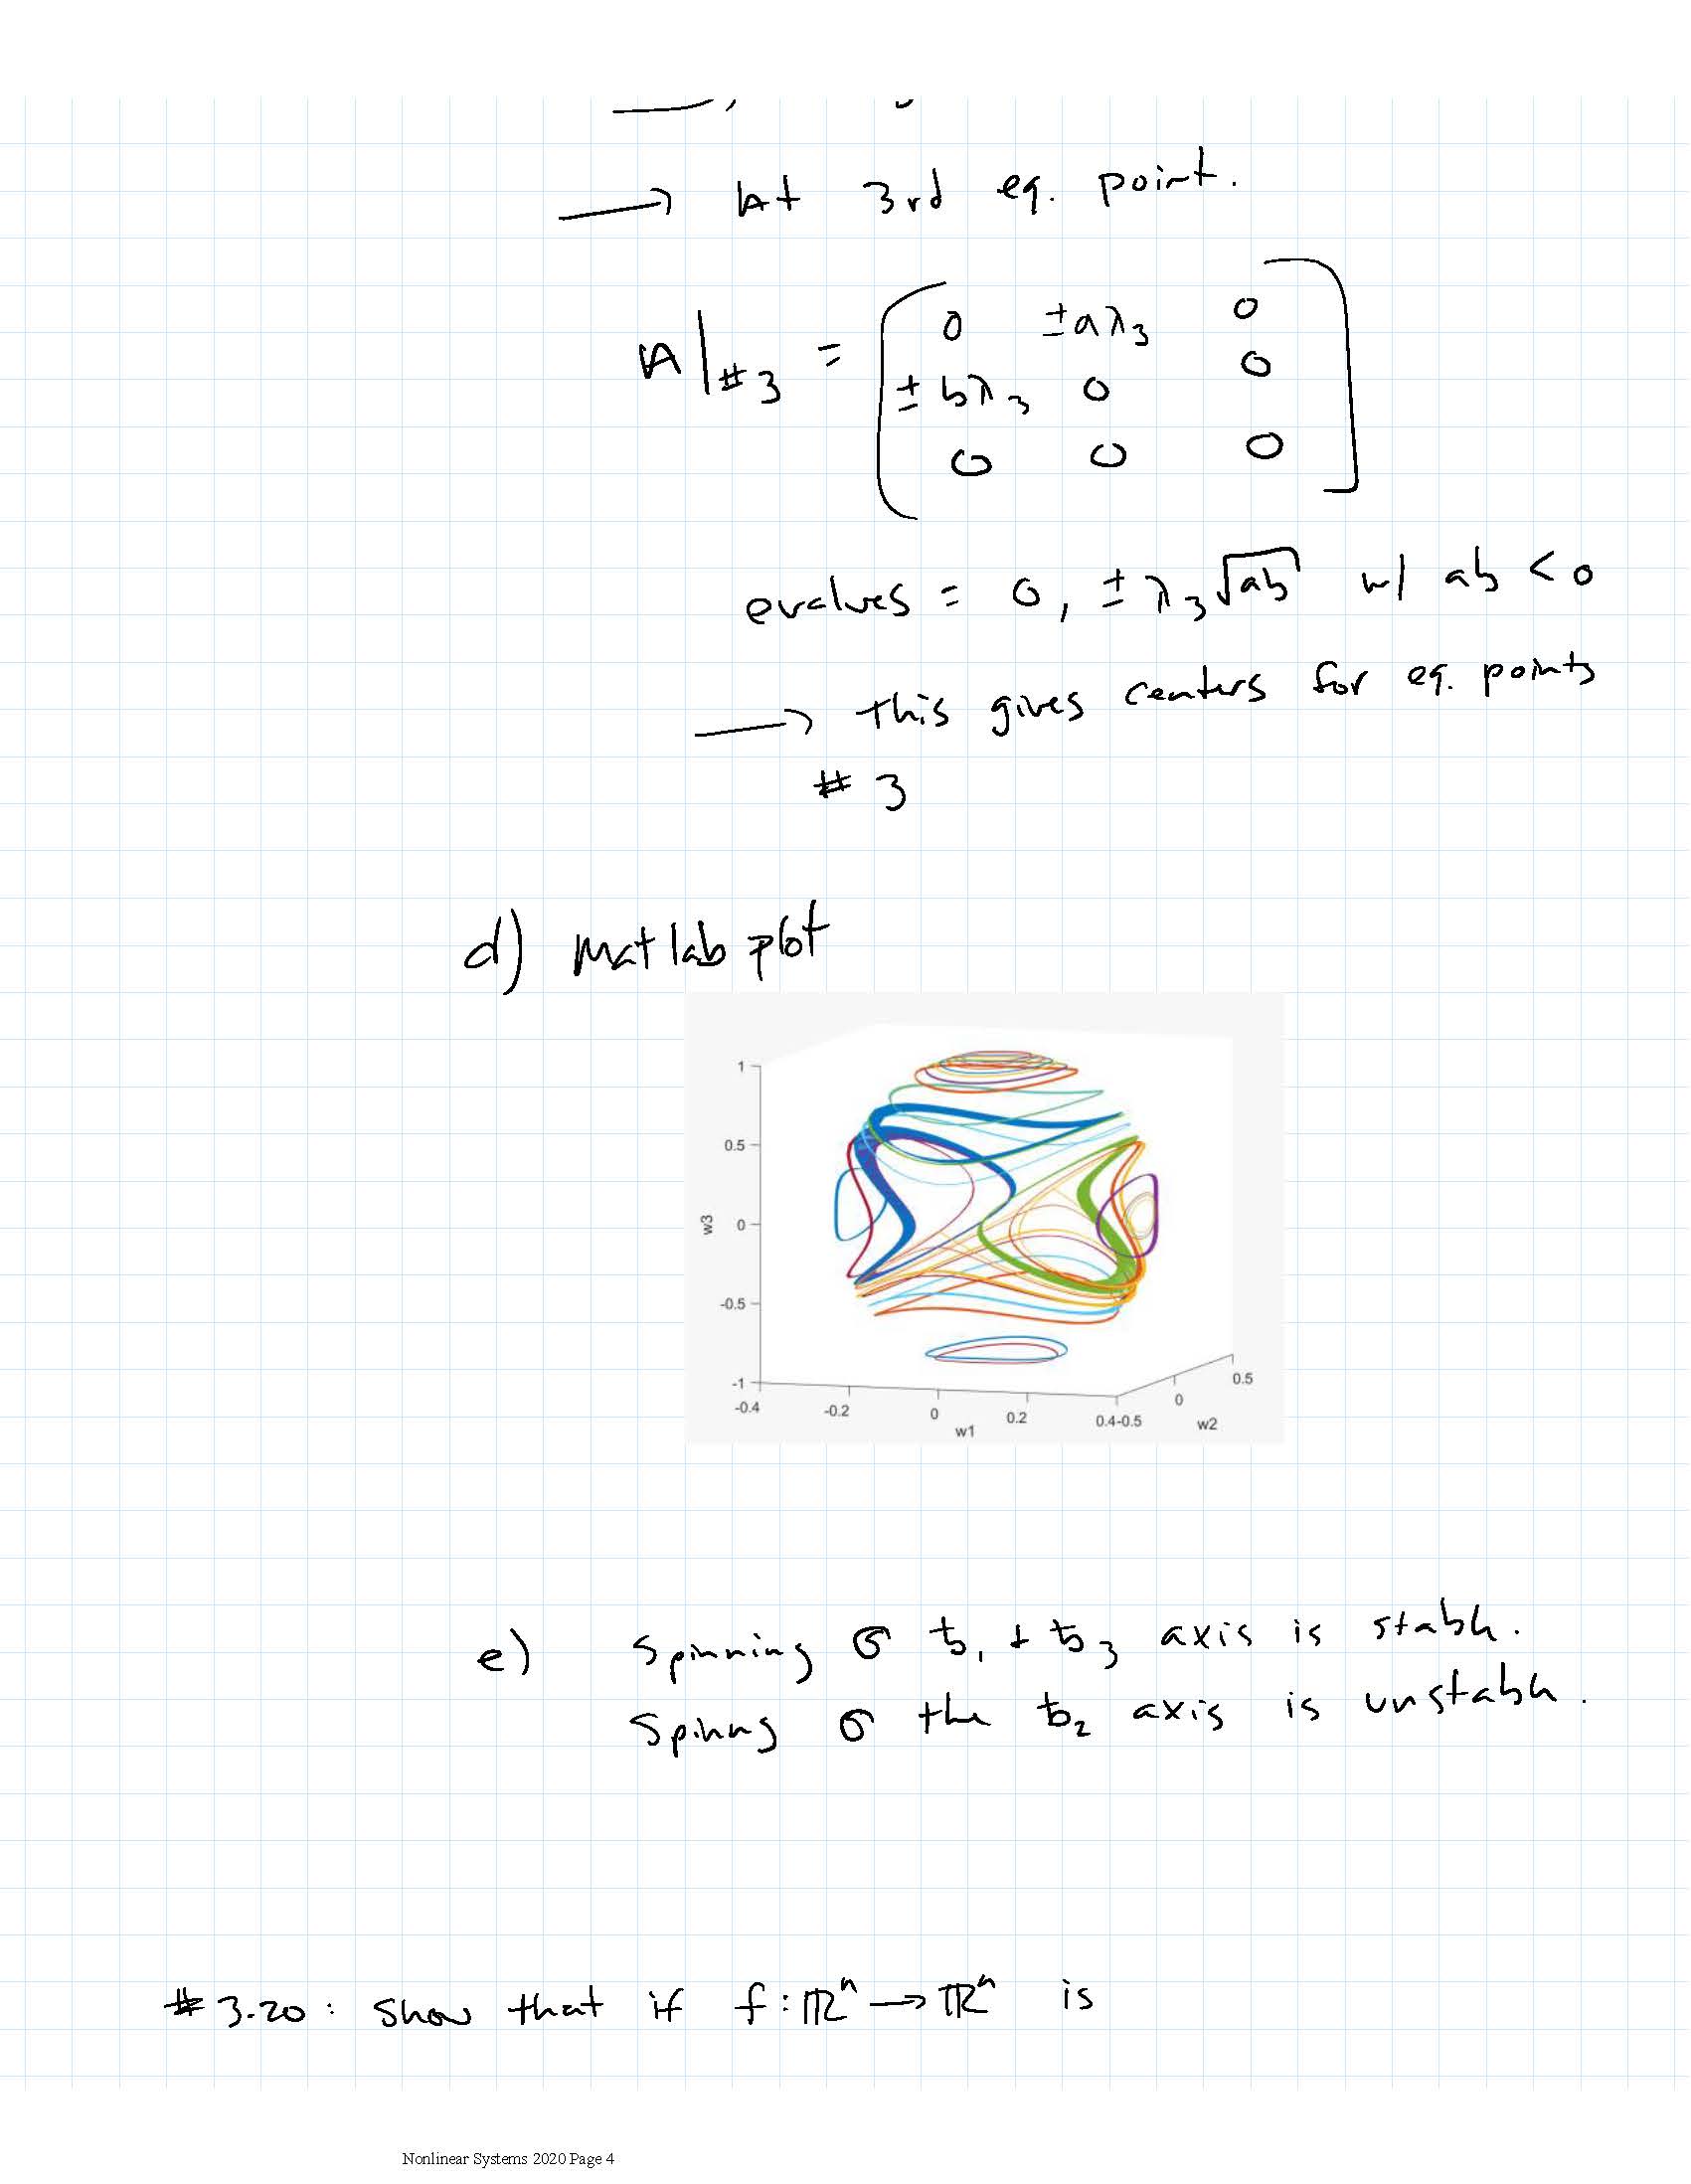 → At 3rd eq. point.
A|#3 = [ 0 ±aλ3 0
±bλ3 0 0
0 0 0 ]
evalues = 0, ±λ3√ab w/ ab < 0
→ this gives centers for eq. points
# 3
d) Matlab plot
1
0.5
w3 0
-0.5
-1
-0.4 -0.2 0 0.2 0.4 -0.5 0 0.5
w1 w2
e) Spinning b1 + b3 axis is stable.
the b2 axis is unstable.
#3.20: Show that if f: ℝⁿ → ℝⁿ is
Nonlinear Systems 2020 Page 4